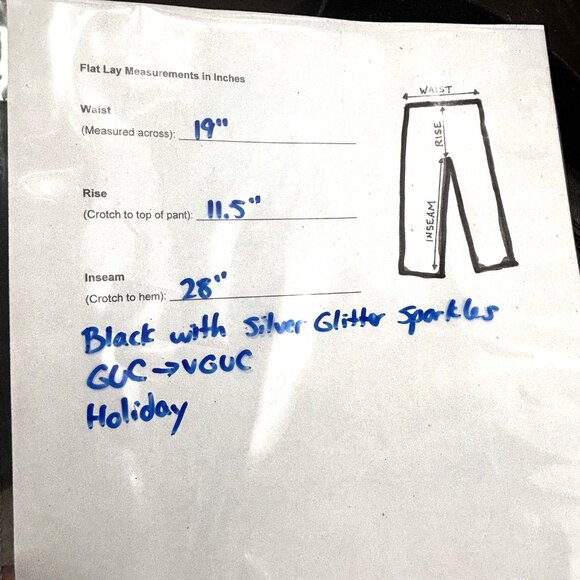 Flat Lay Measurements in Inches
Waist
(Measured across): 19"
Rise
(Crotch to top of pant): 11.5"
Inseam
(Crotch to hem): 28"
Black with Silver Glitter Sparkles
GUC → VGUC
Holiday
WAIST
RISE
INSEAM